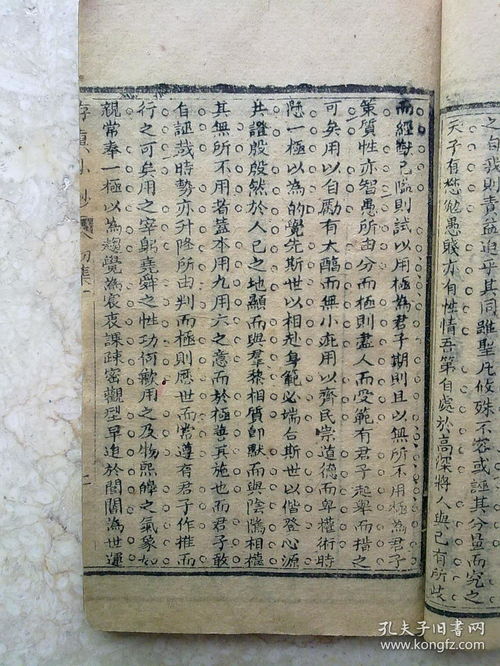 之自我則責益迫乎其同雖聖凡攸殊不容或誣其分量而究之
天子有愆勉愚賤亦有性情吾第自處於高深將人與己有所歧
而經對己臨則試以用極為君子期則且以無所不用極為君子
策質性亦智愚所由分而極則盡人而受範有君子起舉而楷之
可矣用以自勵有大醇而無小疵用以齊民崇道德而卑權術時
懸一極以為的覺先斯世以相赴身範必端合斯世以偕登心源
共證殷殷然於人己之地顯而與羣黎相質即默而與陰隲相權
其無所不用者蓋本用九用六之意而於極善其施也而君子敢
自誣哉時勢亦升降所由判而極則歷世而常遵有君子作推而
行之可矣用之宰躬堯舜之性功何歉用之及物熙皞之氣象如
親常奉一極以為趨覺為衮衣課疎密觀型早迨於閭閻為世運
初集
二
孔夫子旧書网
www.kongfz.com